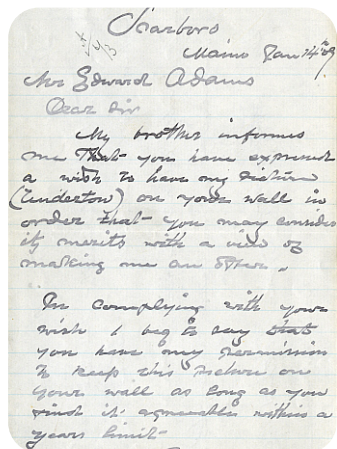 Scarboro
Maine Jan 14th 89
Mr Edward Adams
Dear Sir
My brother informes
me that you have expressed
a wish to have my picture
(Undertow) on your wall in
order that you may consider
its merits with a view of
making me an offer.
In complying with your
wish I beg to say that
you have my permission
to keep this picture on
your wall as long as you
find it agreeable within a
years limit